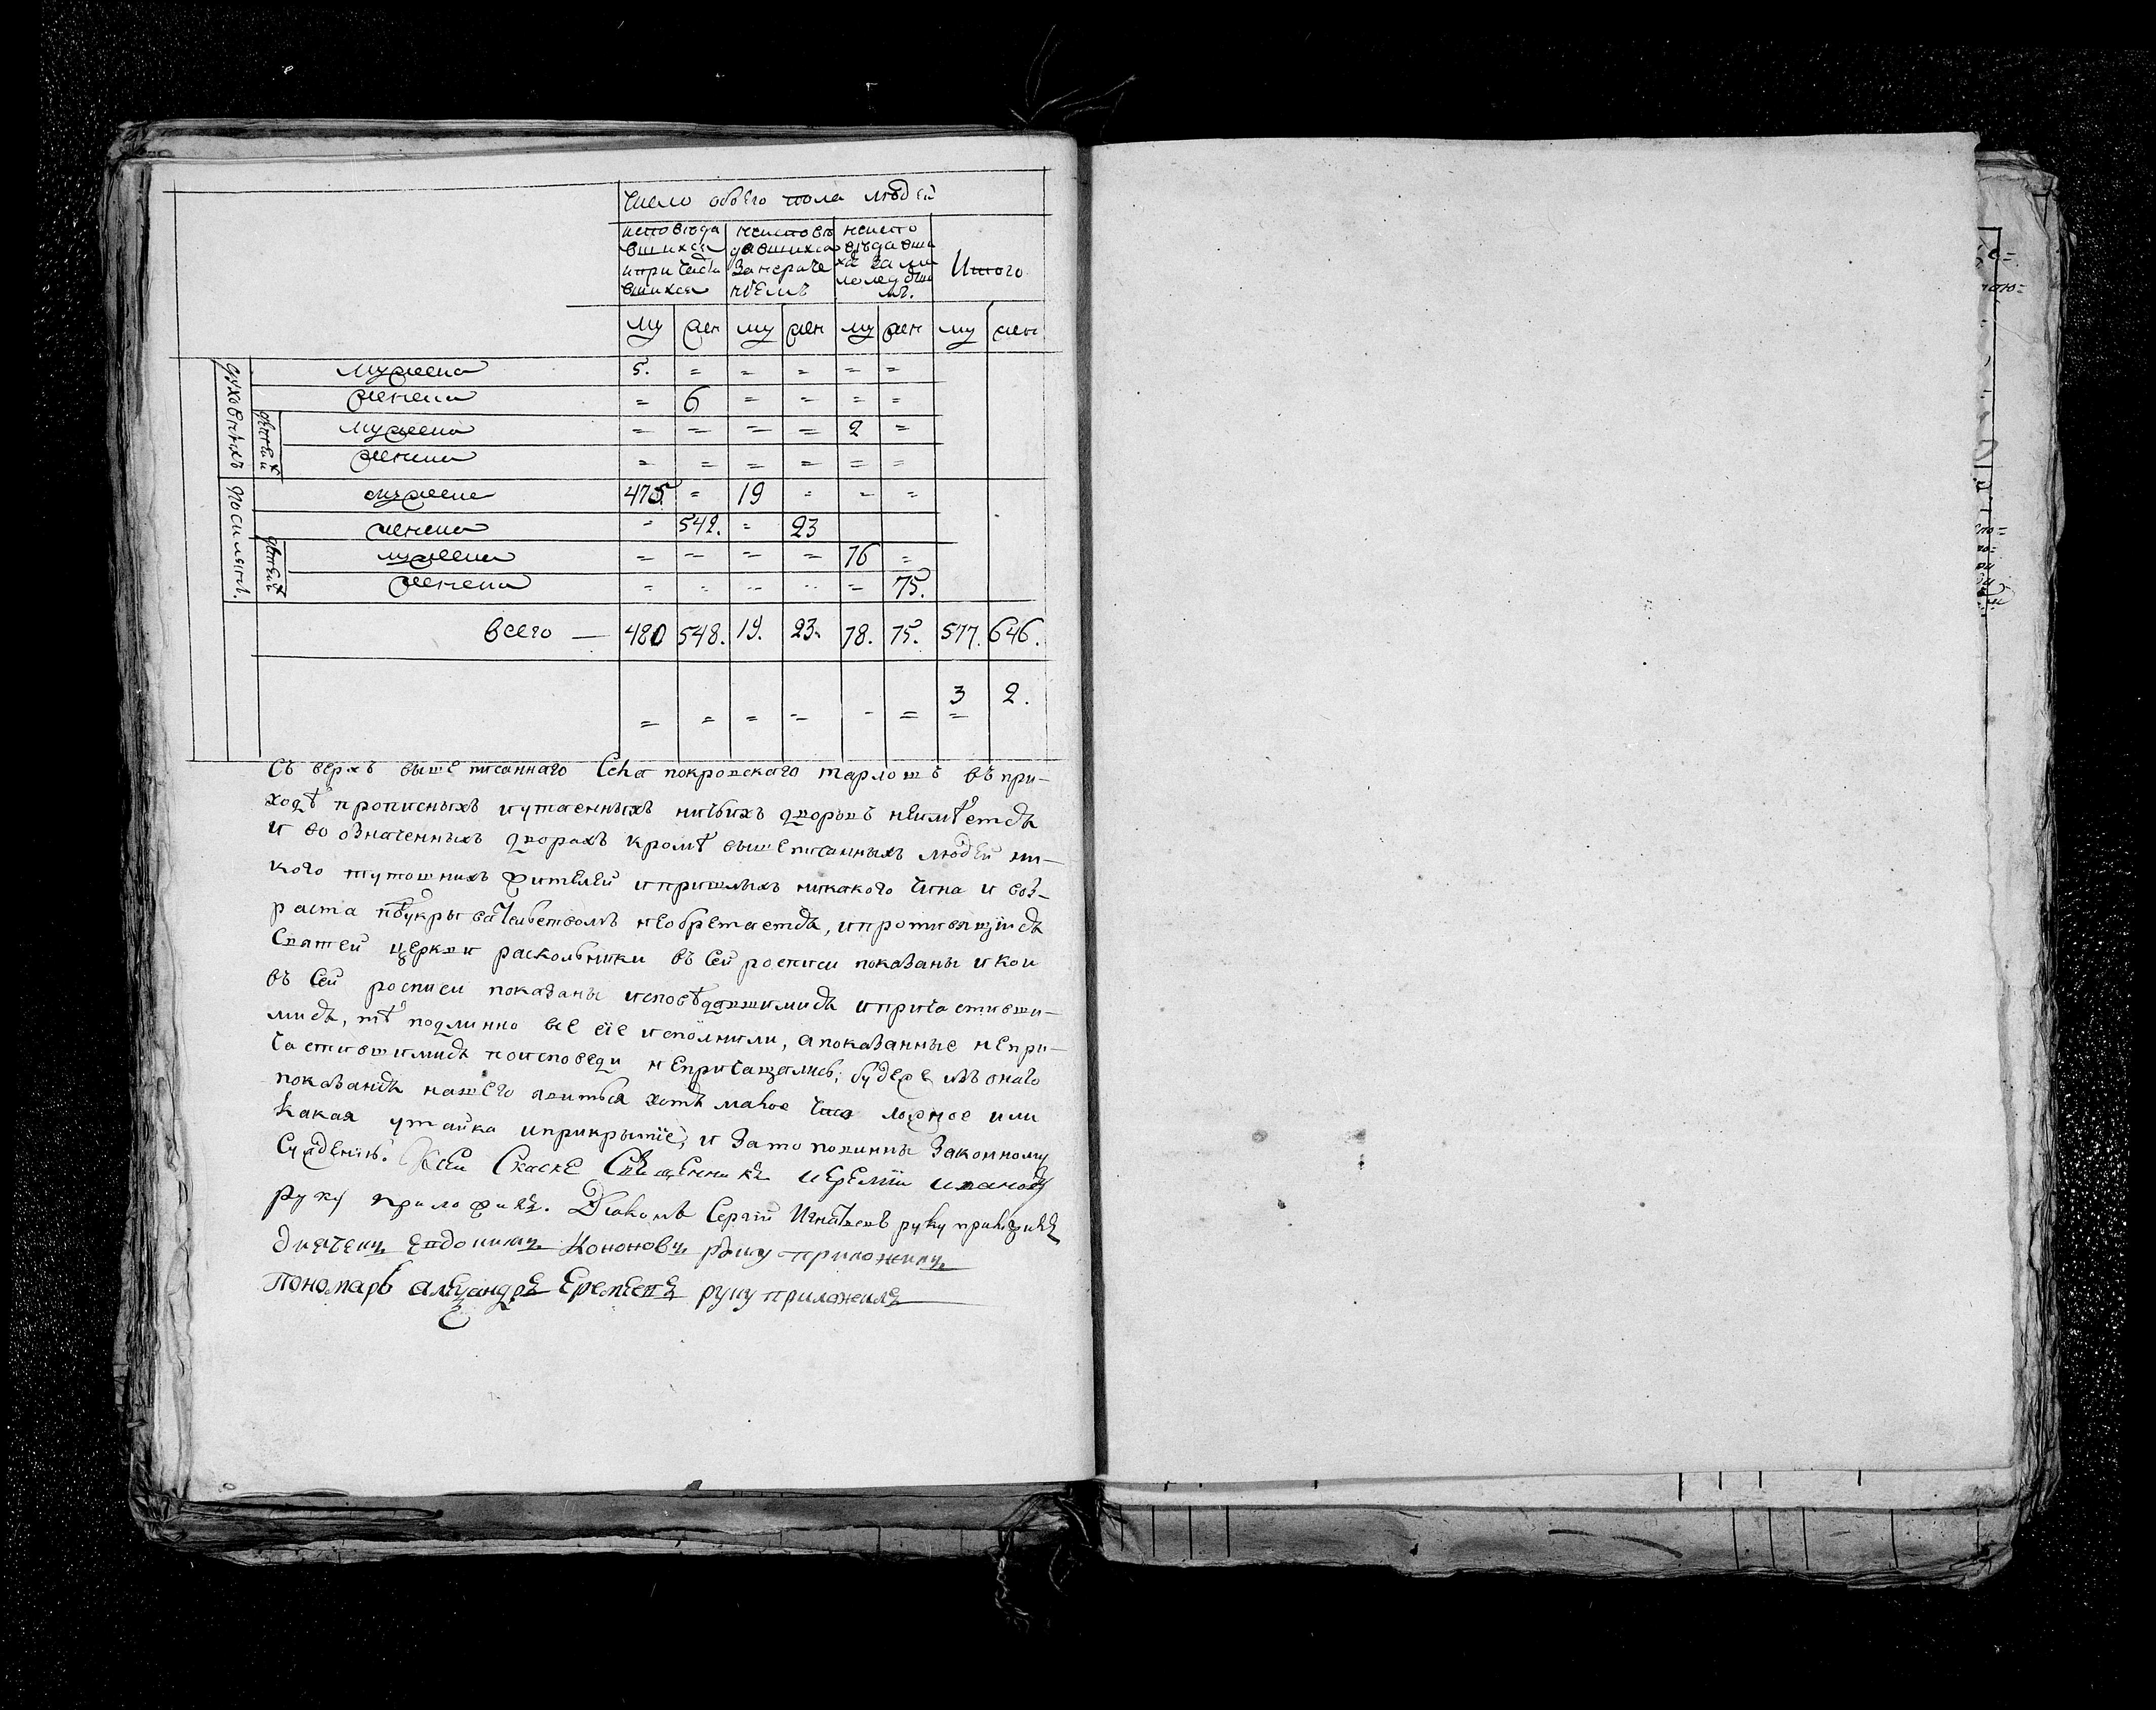 число обоего пола людей
исповѣда неисповѣ неиспо
вшихся давшихся вѣдавши
и причасти за нераче хся за ма Итого
вшихся нïемъ
му жен му жен му жен му жен
духовныхъ
мужеска 5. = = = = =
женска = 6 = = = =
дѣтей ихъ
мужеска = = = = 2 =
женска = = = = = =
мужеска 475 = 19 = = =
женска = 542. = 23
дѣтей ихъ
мужеска = = = = 76 =
женска = = = = = 75.
всего — 480 548. 19. 23. 78. 75. 577. 646.
3 2.
= = = = = = =
Съ верхъ выше писаннаго Села покровскаго тарлошъ въ при-
ходѣ прописныхъ и утаенныхъ ничьихъ дворовъ неимѣется
и во означенныхъ дворахъ кромѣ вышеписанныхъ людей ни-
кого тутошнихъ жителей и пришлыхъ никакого чина и воз-
раста необретается, и противящïися
Святей церкви раскольники въ сей росписи показаны и кои
въ сей росписи показаны исповѣдавшимися и причастивши-
мися, тѣ подлинно все сïе исполнили, а показанные непри-
частившимися по исповеди непричащались, будеже изъ онаго
показанïя нашего явиться хотя малое что ложное или
какая утайка и прикрытïе, и за то повинны законному
сужденïю. К сей Скаске Священникъ Иеремïй Ивановъ
руку приложилъ. Дïаконъ Сергïй Игнатьевъ руку приложилъ
дьячекъ Евдокимъ Кононовъ руку приложилъ
Пономарь алеѯандръ Еремѣевъ руку приложилъ